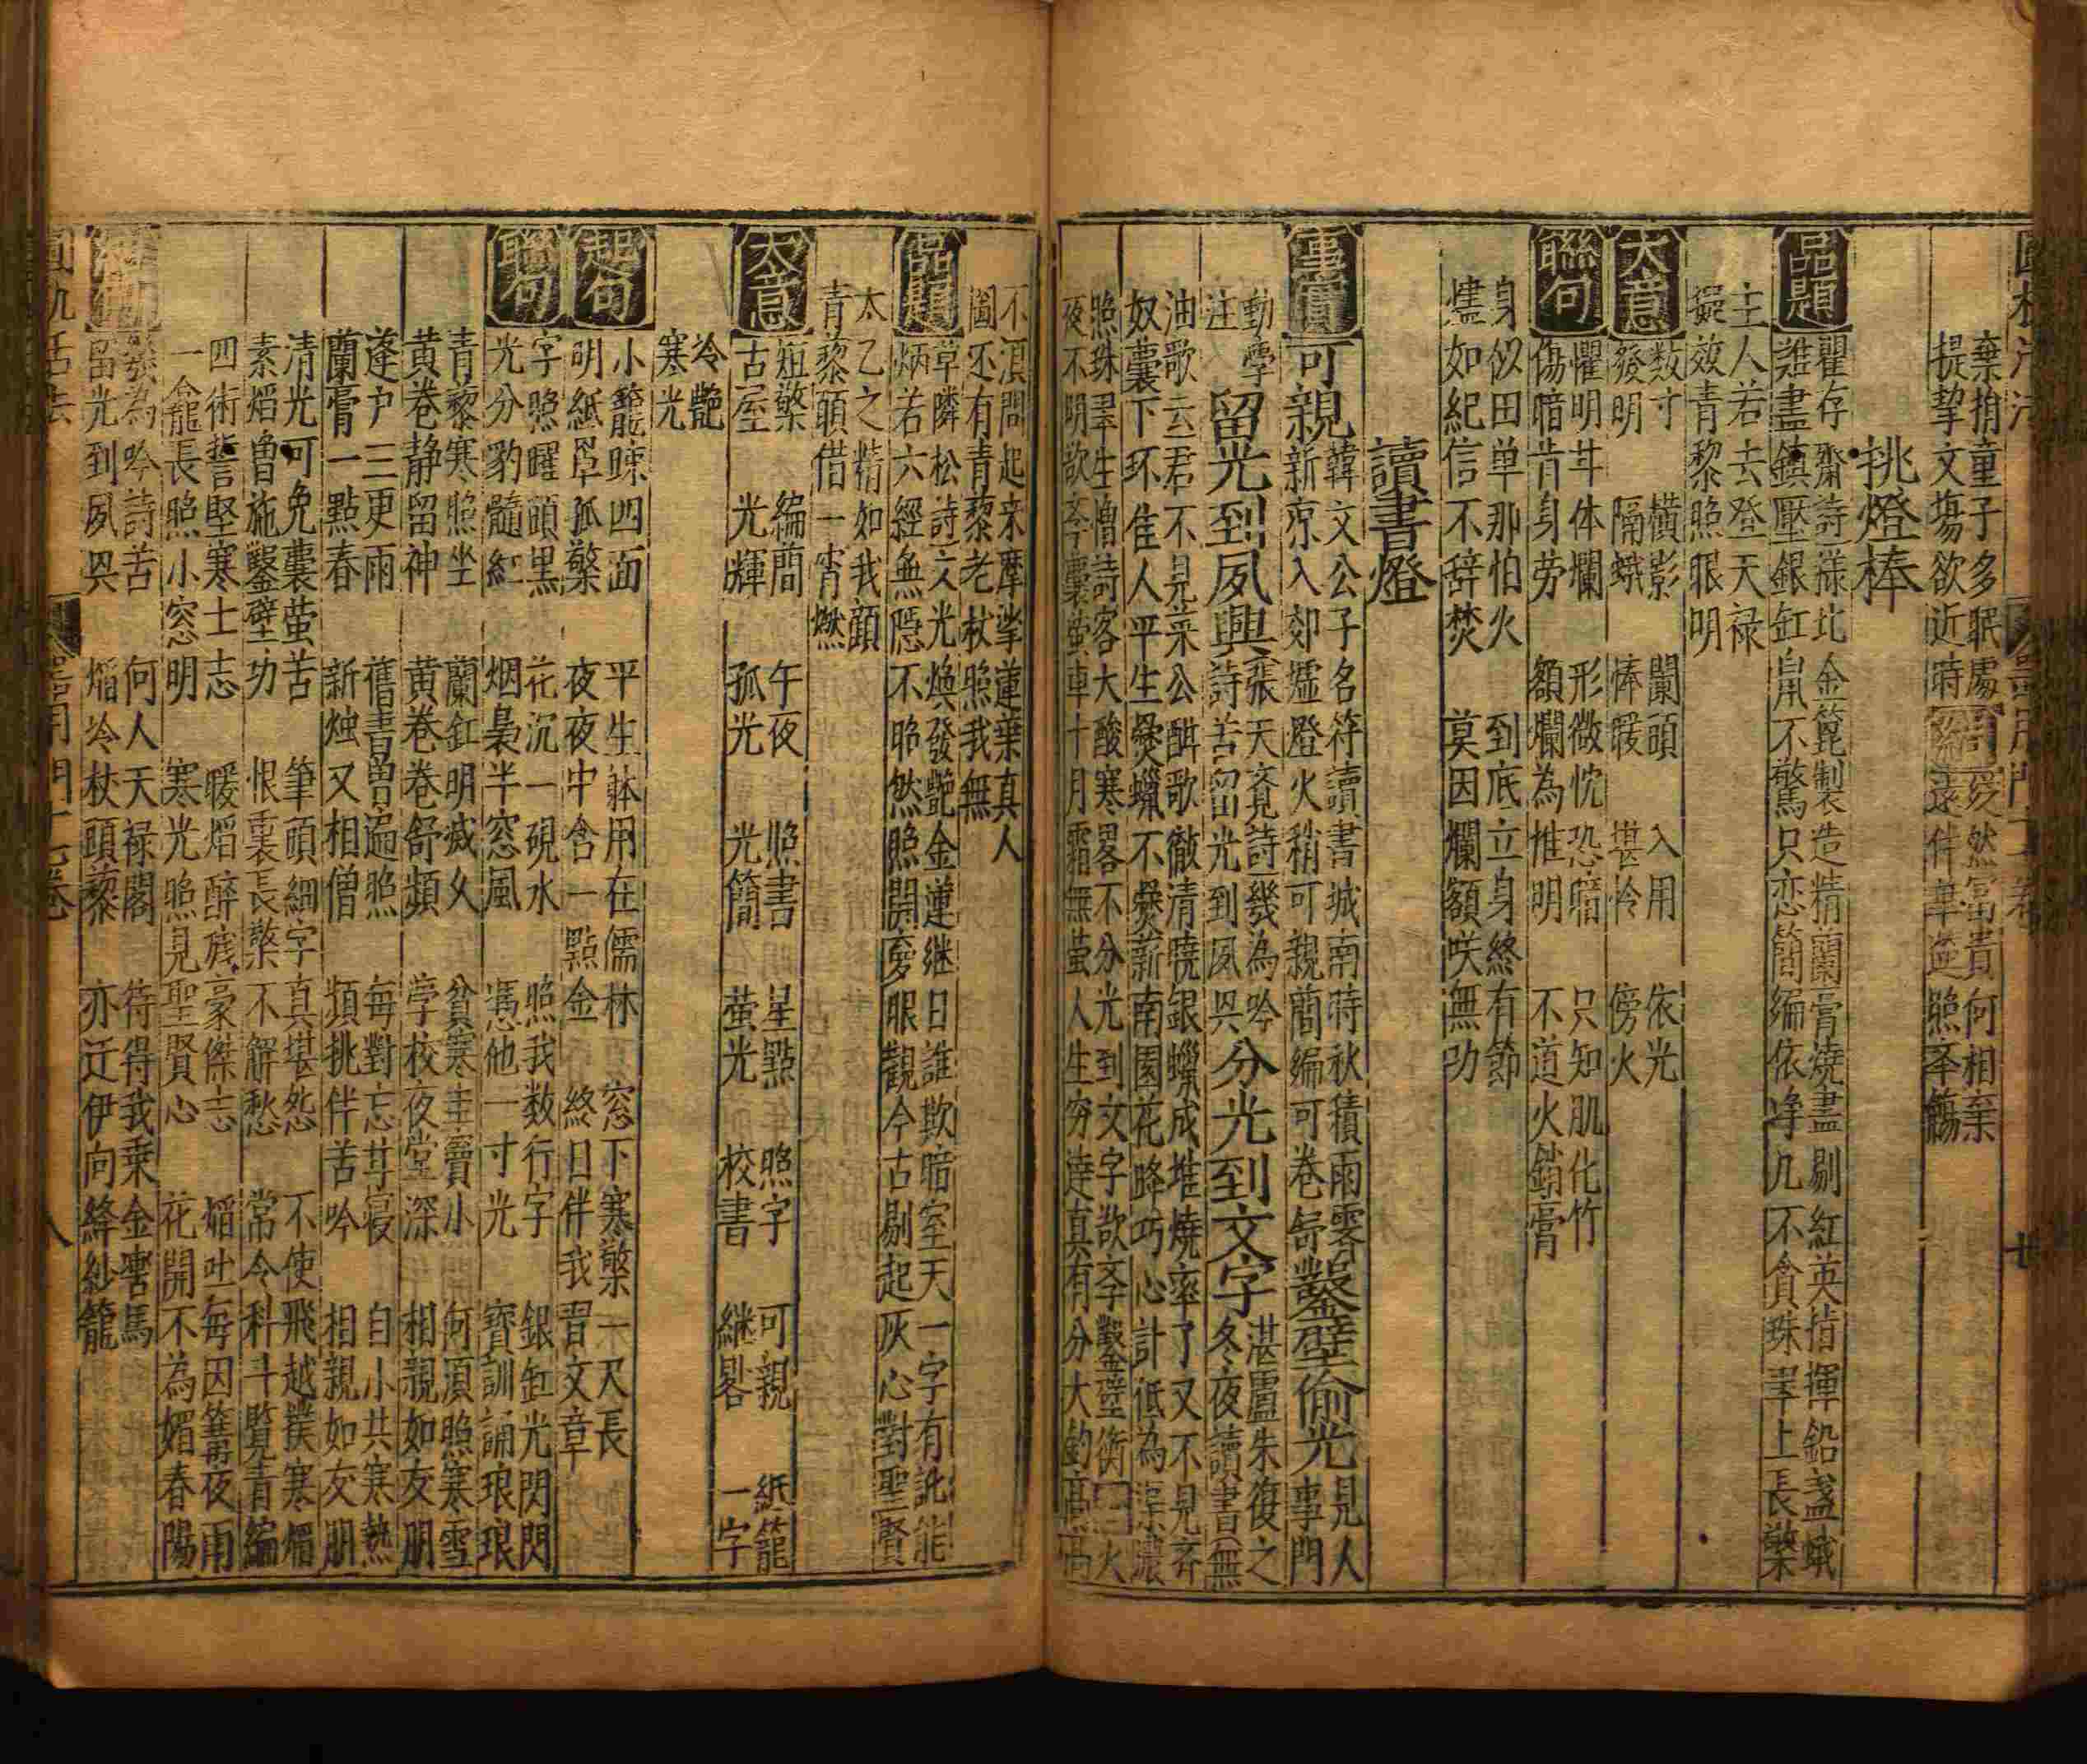 棄捐童子多眠處
提挈文場欲近時
爰然富貴何相棄
照夲觴
挑燈棒
品題
瞿存齋詩様比金篦製造精蘭膏燒盡剔紅英指揮鉛盞蛾
誰盡鎮壓銀缸鼠不驚只恋簡編依净几不貪珠翠上長檠
主人若去登天禄
疑效青黎照眼明
大意
数寸 橫影 闌頭 入用 依光
發明 隔蛾 怿暖 堪怜 傍火
聯句
懼明甘体爛 形微忱恐暗 只知肌化竹
傷暗肯身劳 額爛為推明 不道火銷膏
身似田単那怕火 到底立身終有節
燼如紀信不辞焚 莫因爛額咲無功
讀書燈
事實
可親
韓文公子名符讀書城南時秋積雨霽
新凉入郊墟燈火稍可親簡編可巻舒
鑿壁偷光
見人
事門
動學
注
留光到夙興
張天覔詩幾為吟
詩苦留光到夙㒷
分光到文字
湛盧朱復之
冬夜讀書無
油歌云君不見菜公酣歌徹清曉銀蠟成堆燒率了又不見齐
奴囊下环佳人平生爂蠟不爂薪南園花降巧心計祗為
照珠翠生憎詩客大酸寒畧不分光到文字欲夲鑿壁衡火
夜不明欲夲囊萤車十月霜無萤人生穷達真有分大鈞高
不湏問起来摩挲蓮葉真人
還有青黎老杖照我無
品題
草隣松詩文光煥發艶金蓮継日誰欺暗室天一字有訛能
炳若六經無隱不昭然照開寒眼觀今古剔起灰心對聖賢
太乙之精如我顧
青藜頭借一宵燃
大意
短檠 編簡 午夜 照書 星點 照字 可親 紙籠
古屋 光輝 孤光 光簡 萤光 校書 継晷 一字
冷艷
寒光
起句
小籠竦四面 平生躰用在儒林 窓下寒檠一尺長
明紙罩孤檠 夜夜中含一點金 終日伴我習文章
聯句
字照曜頭黑 花沉一硯水 照我数行字 銀缸光閃閃
光分豹髓紅 烟裊半窓風 憑他一寸光 寳訓誦琅琅
青藜寒照坐 蘭缸明滅久 貧寒圭竇小 何湏照寒雪
黄巻静留神 黄巻巻舒頻 学校夜堂深 相親如友朋
蓬户三更雨 舊書曽遍照 每對忘甘寝 自小共寒熱
蘭膏一點春 新烛又相僧 頻挑伴苦吟 相親如友朋
清光可免囊萤苦 筆頭細字真堪怨 不使飛越撲寒焰
素熖曽施鑿壁功 恨裏長檠不解愁 常令科斗覧青編
四術誓堅寒士志 暖熖醉殘豪傑志 熖吐每因篝夜雨
一龕長照小窓明 寒光照見聖賢心 花開不為媚春陽
發為吟詩苦 何人天禄閣 待得我乗金轡馬
留光到夙㒷 熖冷杖頭藜 亦迁伊向絳紗籠